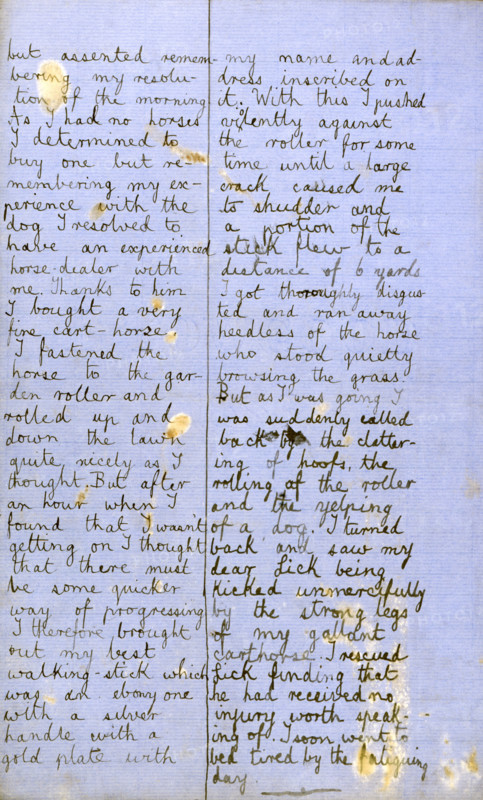 but assented remem-
bering my resolu-
tion of the morning
As I had no horses
I determined to
buy one but re-
membering my ex-
perience with the
dog I resolved to
have an experienced
horse-dealer with
me. Thanks to him
I bought a very
fine cart-horse.
I fastened the
horse to the gar-
den roller and
rolled up and
down the lawn
quite nicely as I
thought. But after
an hour when I
found that I wasn't
getting on I thought
that there must
be some quicker
way of progressing
I therefore brought
out my best
walking-stick which
was an ebony one
with a silver
handle with a
gold plate with
my name and ad-
dress inscribed on
it. With this I pushed
violently against
the roller for some
time until a large
crack caused me
to shudder and
a portion of the
stick flew to a
distance of 6 yards
I got thoroughly disgus-
ted and ran away
heedless of the horse
who stood quietly
browsing the grass.
But as I was going I
was suddenly called
back by the clatter-
ing of hoofs, the
rolling of the roller
and the yelping
of a dog. I turned
back and saw my
dear Lick being
kicked unmercifully
by the strong legs
of my gallant
carthorse. I rescued
Lick finding that
he had received no
injury worth speak-
ing of. I soon went to
bed tired by the fatiguing
day.